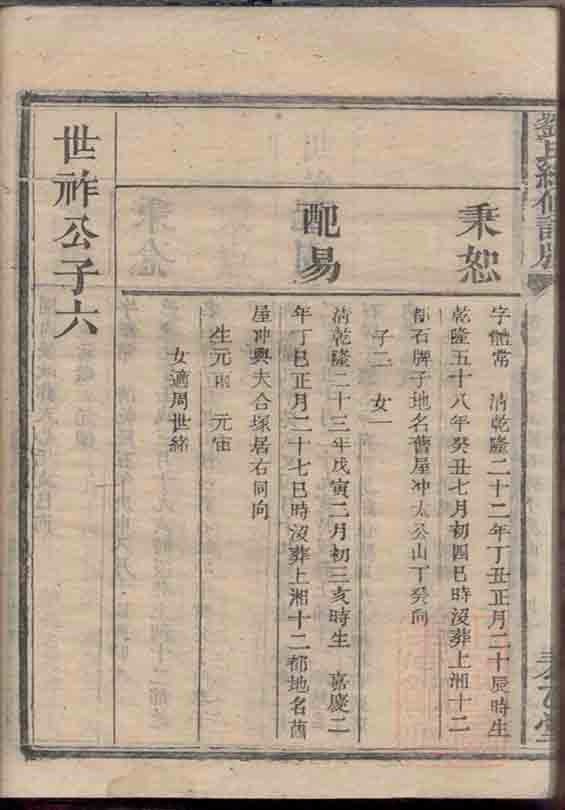 秉恕
字體常　清乾隆二十二年丁丑正月二十辰時生
乾隆五十八年癸丑七月初四巳時沒葬上湘十二
都石牌子地名曹屋冲太公山丁癸向
子二　女一
配易
清乾隆二十三年戊寅二月初三亥時生　嘉慶二
年丁巳正月二十七巳時沒葬上湘十二都地名
屋冲與夫合塚居右同向
生元　元
女適周世緒
世祚公子六